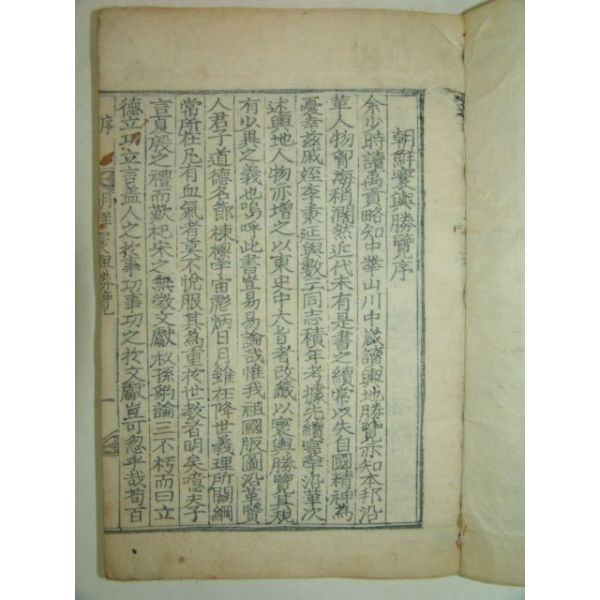 朝鮮寰輿勝覽序
余少時讀禹貢略知中華山川中歲讀輿地勝覽亦知本邦沿
革人物曾海稍濶然近代未有是書之續常以失自國精神為
憂幸玆戚姪李秉延與數三同志積年考據先續寰宇沿革次
述輿地人物亦增之以東史中大旨者改籖以寰輿勝覽其規
有少異之義也嗚呼此書豈易易論哉惟我祖國版圖沿革賢
人君子道德名節棟樑宇宙彪炳日月雖在降世義理所關綱
常所在凡有血氣者莫不悅服其為重於世教者明矣噫夫子
言夏殷之禮而歎杞宋之無徵文獻叔孫豹論三不朽而曰立
德立功立言盖人之於事功事功之於文獻豈可忽乎哉苟百
序
朝鮮寰輿勝覽
一